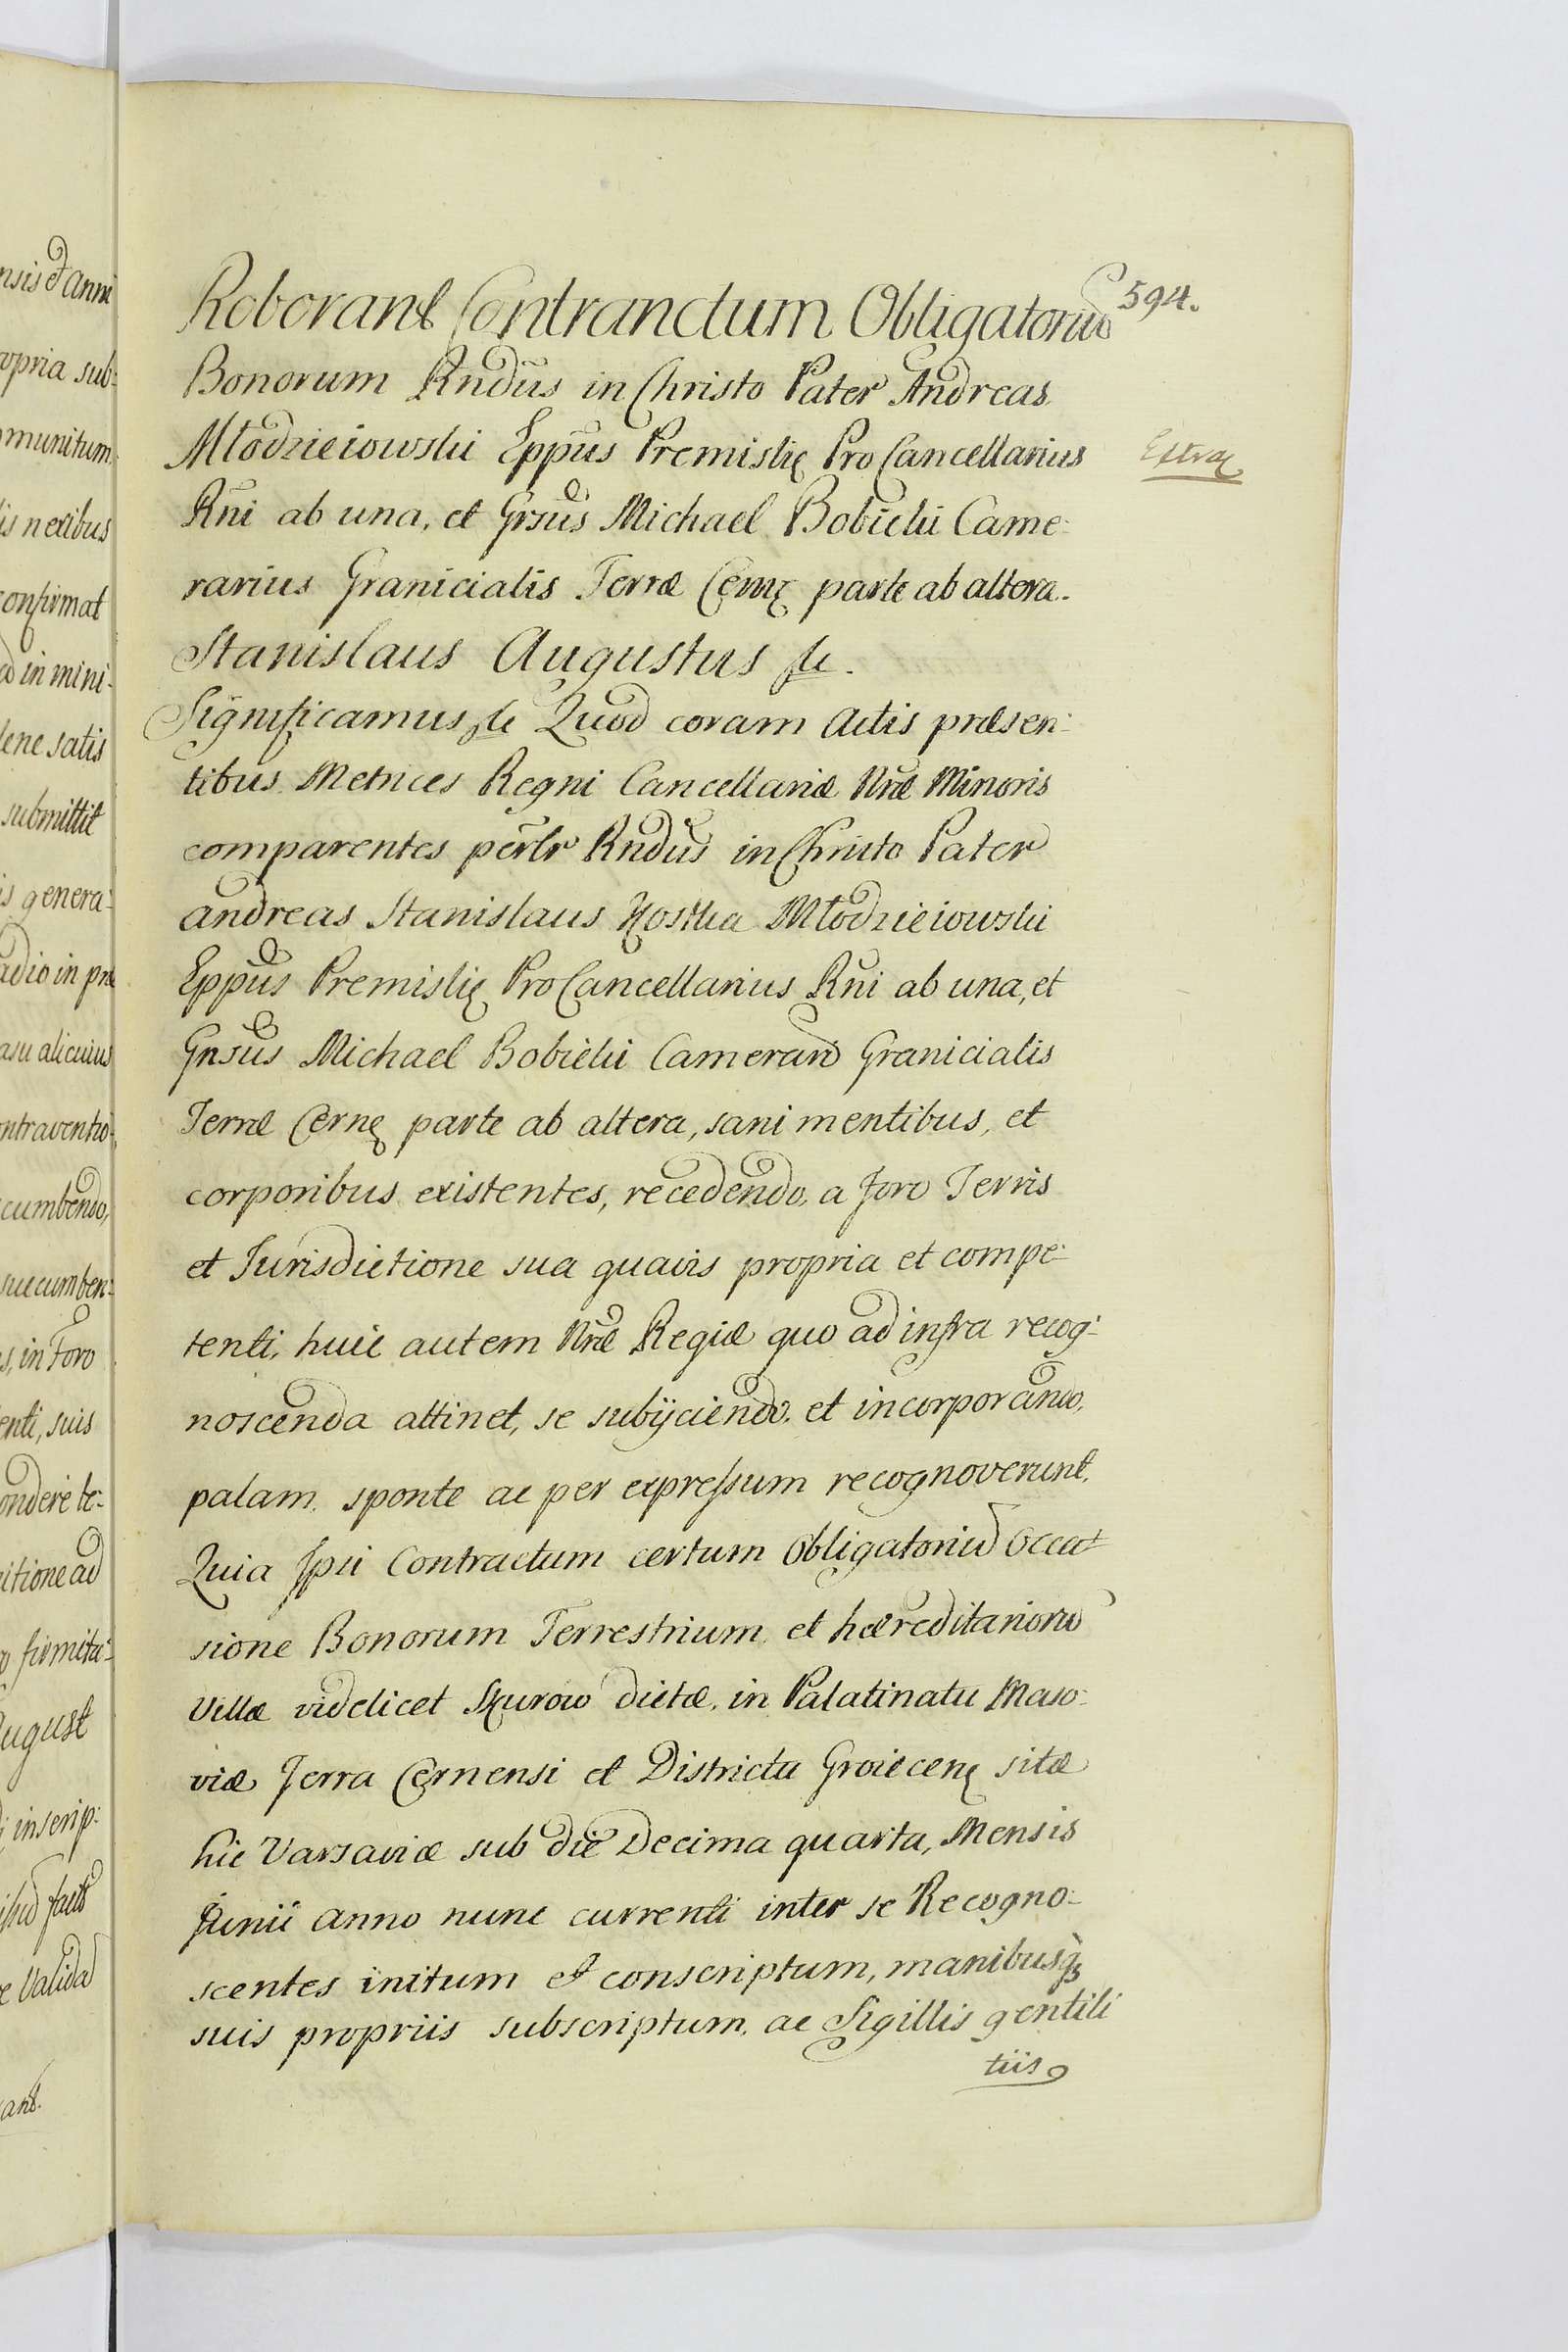 nsis et anni
ropria sub:
munitum.
is nexibus
confirmat
in mini:
lene satis
submittit
is genera:
adio in præ
asu alicuius
ontraventio:
cumbendo,
succumben:
s, in Foro
enti, suis
ondere te:
itione ad
firmita:
August
inscrip:
facto
e Valida
ant.
594.
Roborant Contranctum Obligatoriu
Bonorum Rndūs in Christo Pater Andreas
Młodzieiowski Eppūs Premislię Pro Cancellarius
Extraę
Rni ab una, et Grsūs Michael Bobicki Came:
rarius Granicialis Terræ Cernę parte ab altera.
Stanislaus Augustus &c.
Significamus &c Quod coram Actis præsen:
tibus Metrices Regni Cancellariæ Nræ Minoris
comparentes perlr Rndūs in Christo Pater
andreas Stanislaus Kostka Młodzieiowski
Eppūs Premislię Pro Cancellarius Rni ab una, et
Gnsūs Michael Bobicki Camerari Granicialis
Terræ Cernę parte ab altera, sani mentibus, et
corporibus existentes, recedendo, a foro Terris
et Jurisdictione sua quavis propria et compe:
tenti, huic autem Nræ Regiæ quo ad infra recog:
noscenda attinet, se subijciendo, et incorporando,
palam, sponte ac per expressum recognoverunt.
Quia Ipsi Contractum certum Obligatoriu occa:
sione Bonorum Terrestrium et hæreditarioru
Villæ videlicet Skurow dictæ, in Palatinatu Maso:
viæ Terra Cernensi et Districtu Groiecenę sitæ
hic Varsaviæ sub die Decima quarta, Mensis
Junii anno nunc currenti inter se Recogno:
scentes initum et conscriptum, manibusq
suis propriis subscriptum, ac Sigillis gentili
tiis